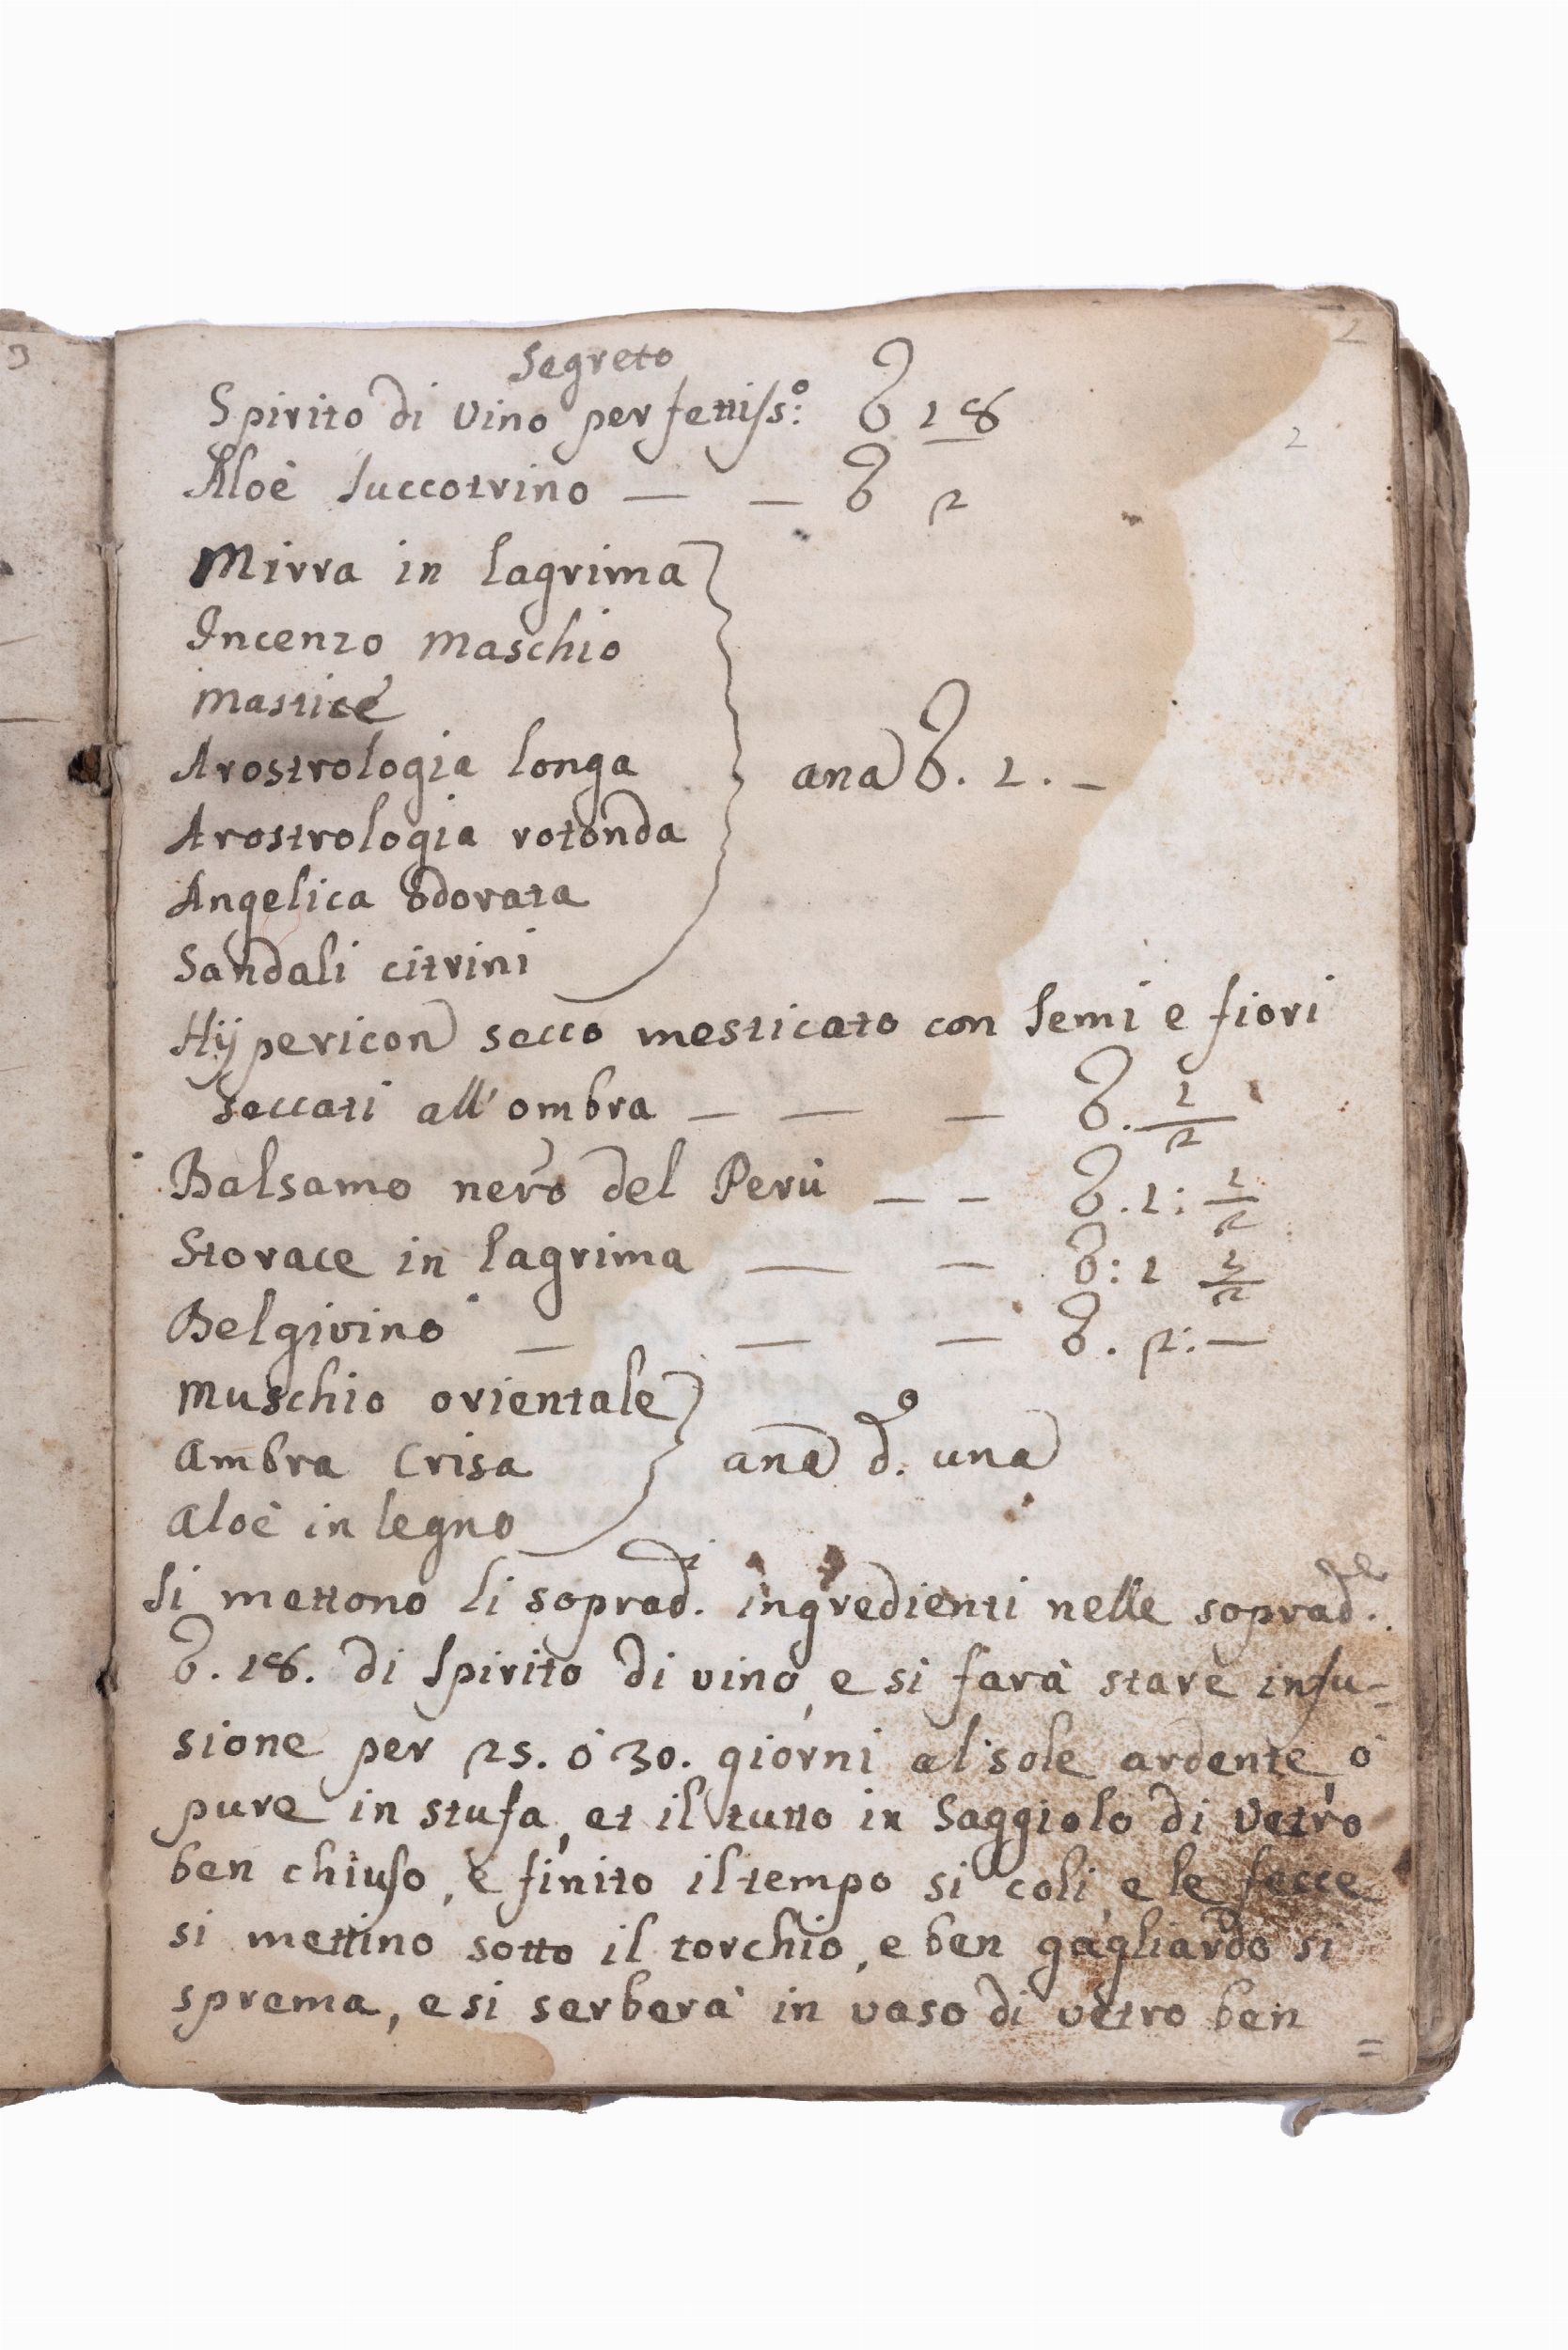 2
Segreto
Spirito di vino perfettiss:º ℥ 18
2
Aloè succotrino — — ℥ 2
Mirra in lagrima
Incenzo maschio
Mastice
Arostrologia longa ana ℥. 1. –
Arostrologia rotonda
Angelica odorata
Sandali citrini
Hÿpericon secco mesticato con semi e fiori
seccati all'ombra — — — ℥. 1/2
Balsamo nero del Perù — – ℥. 1: 1/2
Storace in lagrima — – ℥: 1 1/2
Belgivino — — — ℥. 2: —
Muschio orientale
Ambra Crisa ana d. una
Aloè in legno
Si mettono li soprad.i ingredienti nelle soprad.
℥. 18. di spirito di vino, e si farà stare infu-
sione per 25. ò 30. giorni al sole ardente, ò
pure in stufa, et il tutto in Saggiolo di vetro
ben chiuso, e finito il tempo si coli, e le fecce
si mettino sotto il torchio, e ben gagliardo si
sprema, e si serberà in vaso di vetro ben
=
3